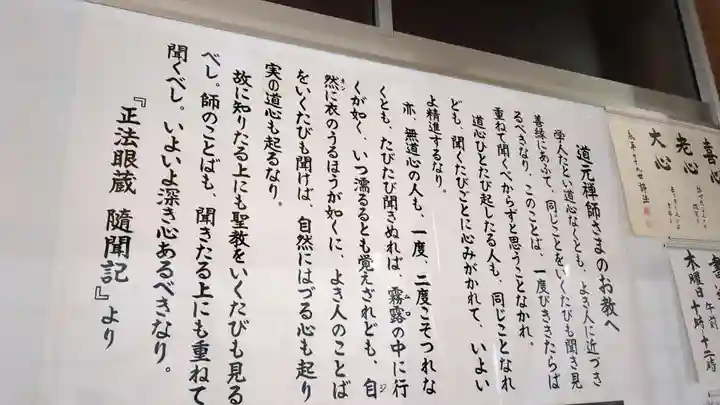 道元禅師さまのお教へ
学人たとい道心なくとも、よき人に近づき
善縁にあふて、同じことをいくたびも聞き見
るべきなり、このことは、一度びききたらば
重ねて聞くべからずと思うことなかれ、
道心ひとたび起したる人も、同じことなれ
ども、聞くたびごとに心みがかれて、いよい
よ精進するなり。
亦、無道心の人も、一度、二度こそつれな
くとも、たびたび聞きぬれば、霧露の中に行
くが如く、いつ濡るるとも覚えざれども、自
然に衣のうるほうが如くに、よき人のことば
をいくたびも聞けば、自然にはづる心も起り
実の道心も起るなり。
故に知りたる上にも聖教をいくたびも見る
べし。師のことばも、聞きたる上にも重ねて
聞くべし。いよいよ深き心あるべきなり。
『正法眼蔵 随聞記』より
喜心
老心
大心
午前
木曜日 十時〜十二時